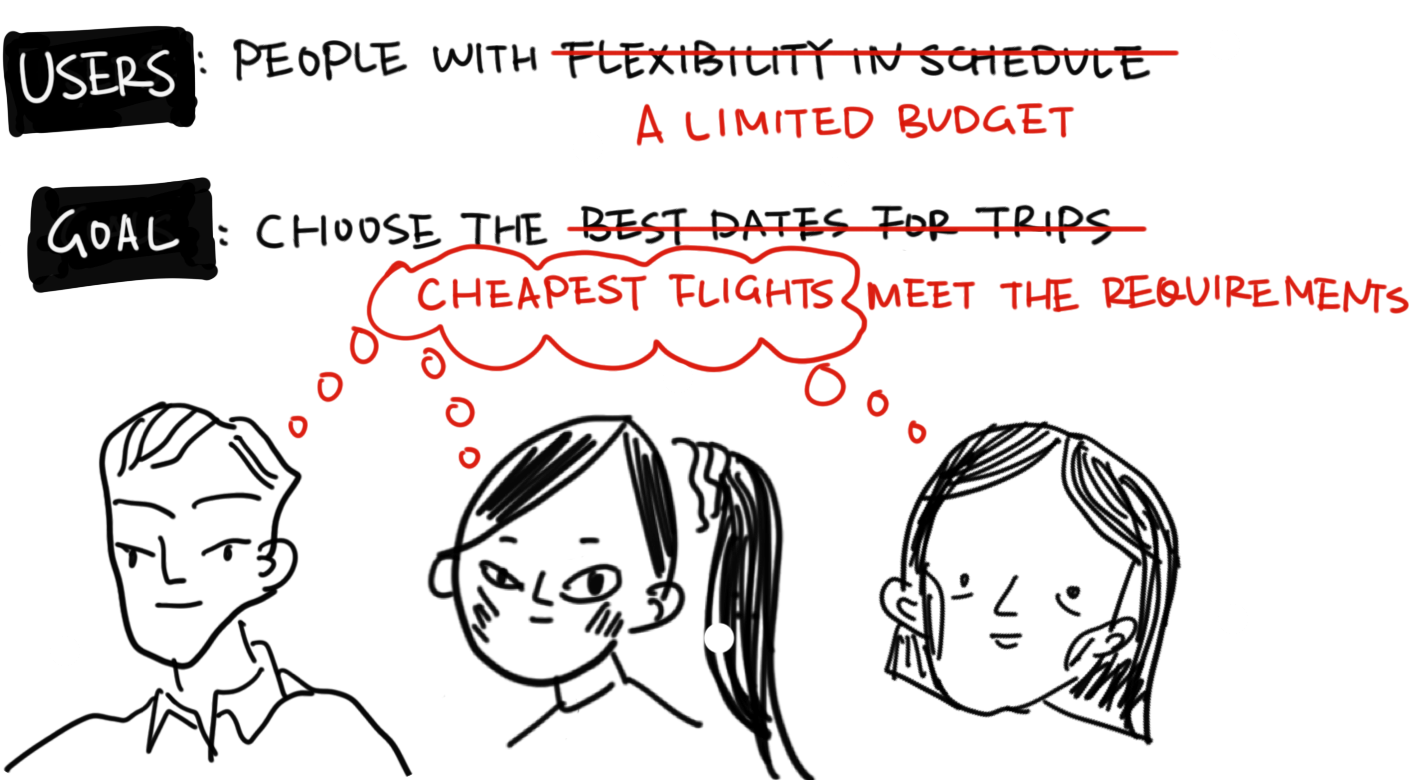 USERS : PEOPLE WITH FLEXIBILITY IN SCHEDULE
A LIMITED BUDGET
GOAL : CHOOSE THE BEST DATES FOR TRIPS
CHEAPEST FLIGHTS MEET THE REQUIREMENTS